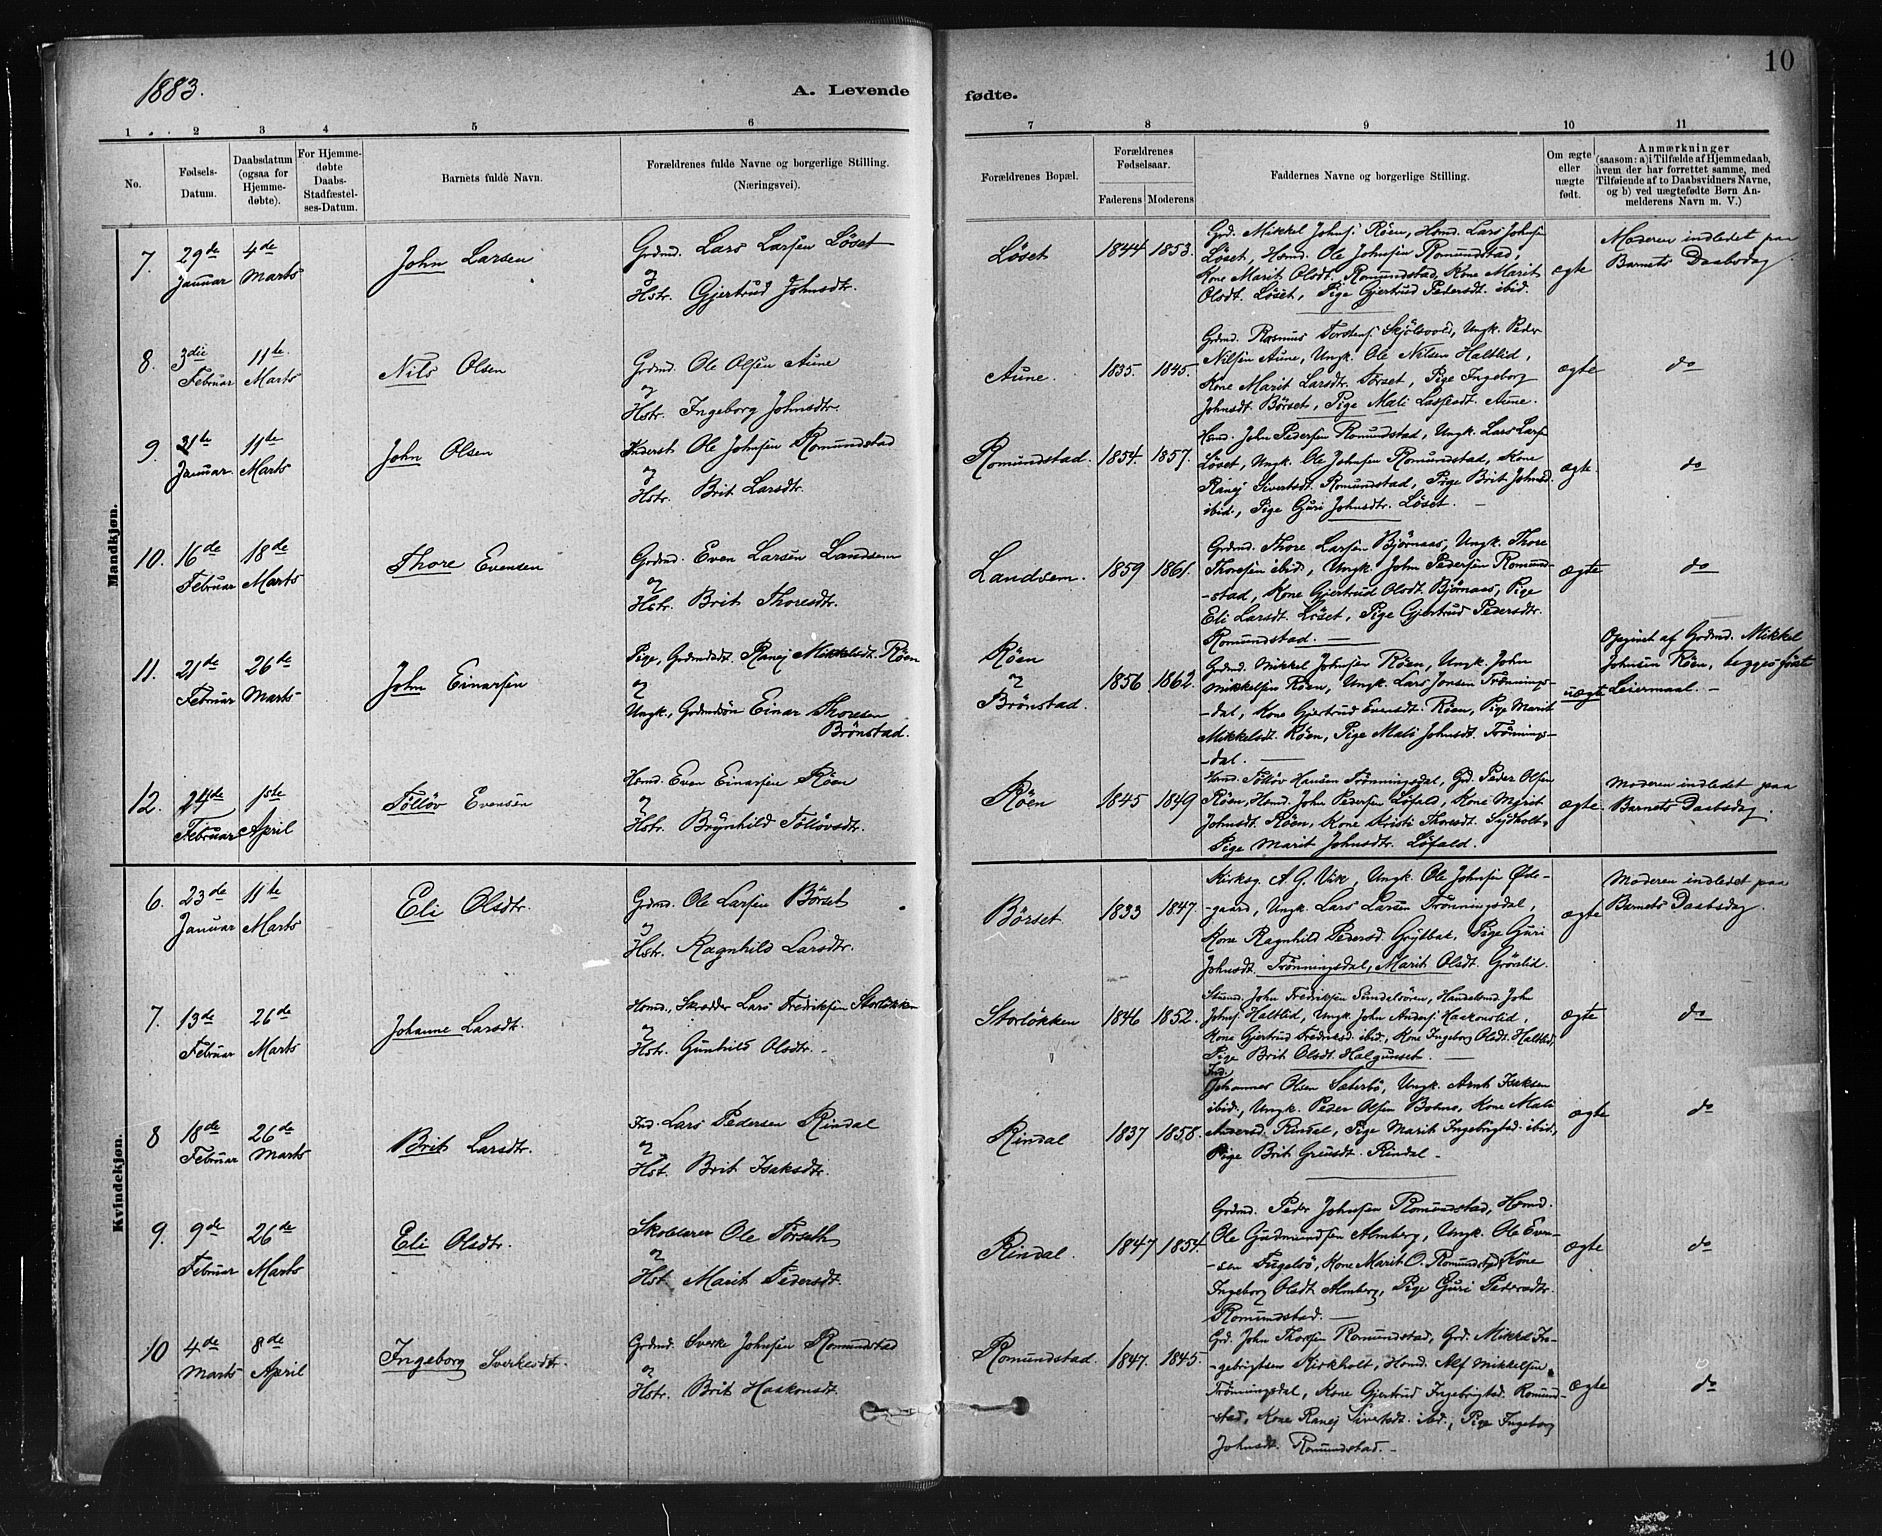 1883.
A. Levende fødte.
10
1 2 3 4 5 6 7 8 9 10 11
No.
Fødsels-Datum.
Daabsdatum (ogsaa for Hjemmedøbte).
For Hjemmedøbte Daabs-Stadfæstelses-Datum.
Barnets fulde Navn.
Forældrenes fulde Navne og borgerlige Stilling. (Næringsvei).
Forældrenes Bopæl.
Forældrenes Fødselsaar.
Faderens Moderens
Faddernes Navne og borgerlige Stilling.
Om ægte eller uægte født.
Anmærkninger
(saasom: a) i Tilfælde af Hjemmedaab,
hvem der har forrettet samme, med
Tilføiende af to Daabsvidners Navne,
og b) ved uægtefødte Børn Anmelderens Navn m. V.)
Mandkjøn.
7. 29de Januar 4de Marts
John Larsen
Grdmd. Lars Larsen Løset
og
Hstr. Gjertrud Johnsdtr.
Løset 1844 1853.
Grd. Mikkel Johns. Røen, Hsmd. Lars Johns.
Løset, Hsmd. Ole Johnsen Romundstad,
Kone Marit Olsdt. Romundstad, Kone Marit
Olsdt. Løset, Pige Gjertrud Pedersdt. ibid.
ægte
Moderen indledet paa
Barnets Daabsdag.
8. 3die Februar 11te Marts
Nils Olsen
Grdmd. Ole Olsen Aune
og
Hstr. Ingeborg Johnsdtr.
Aune. 1835. 1845.
Grdmd. Rasmus Torstens. Skjølsvold, Ungk. Peder
Nilsen Aune, Ungk. Ole Nilsen Haltlid,
Kone Marit Larsdt. Tørset, Pige Ingeborg
Johnsdt. Børset, Pige Mali Lassesdt. Aune.
ægte
do
9. 21te Januar 11te Marts
John Olsen
Inderst Ole Johnsen Romundstad
og
Hstr. Brit Larsdtr.
Romundstad. 1854. 1857.
Hsmd. John Pedersen Romundstad, Ungk. Lars Lars.
Løset, Ungk. Ole Johnsen Romundstad, Kone
Ranej Sivertsdt. Romundstad, Pige Brit Johnsd.
ibid., Pige Guri Johnsdtr. Løset. —
ægte.
do
10. 16de Februar 18de Marts
Thore Evensen
Grdmd. Even Larsen Landsem
og
Hstr. Brit Thoresdtr.
Landsem. 1859 1861.
Grdmd. Thore Larsen Bjørnaas, Ungk. Thore
Thoresen ibid, Ungk. John Pedersen Romund-
-stad, Kone Gjertrud Olsdt. Bjørnaas, Pige
Eli Larsdt. Løset, Pige Gjertrud Pedersdtr.
Romundstad. —
ægte
do
11. 21de Februar 26de Marts
John Einarsen
Pige, Grdmdsdt. Ranej Mikkelsdt. Røen
og
Ungk., Grdmdsøn Einar Thoresen
Brønstad.
Røen
og
Brønstad. 1856 1862.
Grdmd. Mikkel Johnsen Røen, Ungk. John
Mikkelsen Røen, Ungk. Lars Jonsen Trønnings-
-dal, Kone Gjertrud Evensdt. Røen, Pige Marit
Mikkelsdt. Røen, Pige Mali Johnsdt. Trønnings-
-dal. —
uægte
Opgivet af Grdmd. Mikkel
Johnsen Røen, begges første
Leiermaal. —
12. 24de Februar 1ste April
Tølløv Evensen
Hsmd. Even Einarsen Røen
og
Hstr. Brynhild Tølløvsdt.
Røen 1845 1849
Hsmd. Tølløv Hansen Trønningsdal, Grd. Peder Olsen
Røen, Hsmd. John Pedersen Løfald, Kone Marit
Johnsdt. Røen, Kone Kristi Thoresdt.
Pige Marit Johnsdtr. Løfald.
ægte.
Moderen indledet paa
Barnets Daabsdag.
Kvindekjøn.
6. 23de Januar 11te Marts
Eli Olsdtr.
Grdmd. Ole Larsen Børset
og
Hstr. Ragnhild Larsdtr.
Børset 1833 1847.
Kirksg. A. G. Vik, Ungk. Ole Johnsen Øde-
-gaard, Ungk. Lars Larsen Trønningsdal,
Kone Ragnhild Pedersd. Grytbak, Pige Guri
Johnsdt. Trønningsdal, Marit Olsdt. Grønlid.
ægte
Moderen indledet paa
Barnets Daabsdag.
7. 13de Februar 26de Marts
Johanne Larsdt.
Hsmd., Skrædder Lars Fredriksen Storløkken
og
Hstr. Gunhild Olsdtr. -
Storløkken 1846 1852.
John Fredriksen Sundalsøren, Handelsmd. John
Johns. Haltlid, Ungk. John Anders. Haakonslid,
Kone Gjertrud Fredriksd. ibid., Kone Ingeborg Olsdt. Haltlid,
Pige Brit Olsdt. Halgunset. —
ægte
do
8 18de Februar 26de Marts
Brit Larsdtr.
Ind. Lars Pedersen Rindal
og
Hst. Brit Isaksdtr.
Rindal 1837 1858.
Ind.
Johannes Olsen Sæterbø, Ungk. Arnt Isaksen
ibid., Ungk. Peder Olsen Bolme, Kone Mali
Andersd. Rindal, Pige Marit Ingebrigtsd. ibid.,
Pige Brit Rindal -
ægte
do
9. 9de Februar 26de Marts
Eli Olsdtr.
Skolelærer Ole Tørseth
og
Hst. Marit Pedersdt.
Rindal. 1847 1854.
Grdmd. Peder Johnsen Romundstad, Hsmd.
Ole Gudmundsen Almberg, Ungk. Ole Even-
-sen Fugelsø, Kone Marit O. Romundstad, Kone
Ingeborg Olsdt. Almberg, Pige Guri Pedersdtr.
Romundstad. —
ægte
do
10 4de Marts 8de April
Ingeborg Sverkesdtr.
Grdmd. Sverke Johnsen Romundstad
og
Hstr. Brit Haakonsdt.
Romundstad. 1847. 1845.
Grd. John Thorsen Romundstad, Grd. Mikkel In-
-gebrigtsen Kirkholt, Hsmd. Alf Mikkelsen
Trønningsdal, Kone Gjertrud Ingebrigtsd. Romund-
-stad, Kone Ranej Sivertsdt. ibd., Pige Ingeborg
Johnsdt. Romundstad. -
ægte
do